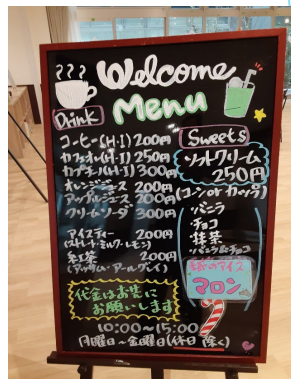 Welcome
Menu
Drink
コーヒー(H・I) 200円
カフェオレ(H・I) 250円
カプチーノ(H・I) 300円
オレンジジュース 200円
アップルジュース 200円
クリームソーダ 300円
アイスティー 200円
(ストレート・ミルク・レモン)
紅茶 200円
(アッサム・アールグレイ)
代金はお先に
お願いします
Sweets
ソフトクリーム
250円
(コーン or カップ)
・バニラ
・チョコ
・抹茶
・バニラ&チョコ
のアイス
マロン
10:00~15:00
月曜日~金曜日(休日除く)